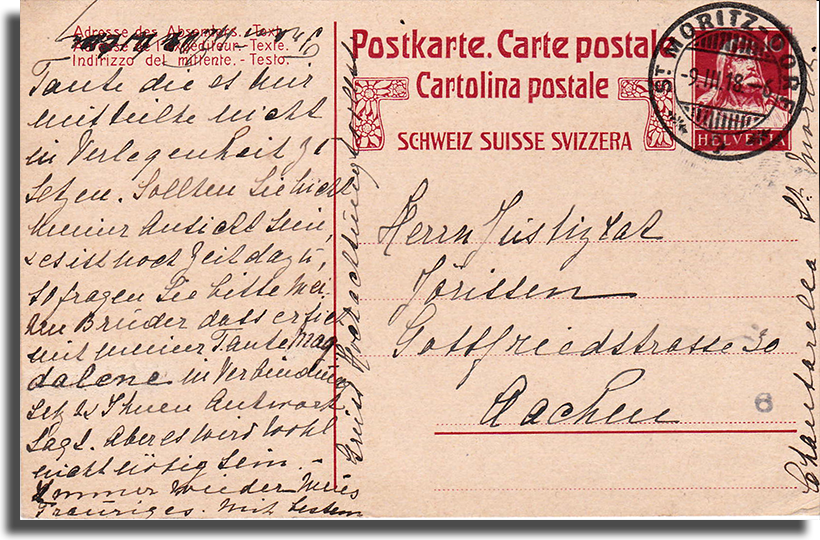 Adresse des Absenders. - Text.
Adresse de l'expéditeur. - Texte.
Indirizzo del mittente. - Testo.
Tante die es mir
mitteilte nicht
in Verlegenheit zu
setzen. Sollten Sie nicht
meiner Ansicht sein,
es ist noch Zeit dazu,
so fragen Sie bitte mei-
nen Bruder dass er sich
mit meiner Tante Mag
dalene in Verbindung
setzt & Ihnen Antwort
sagt. Aber es wird wohl
nicht nötig sein. -
Immer wieder neues
Trauriges. Mit bestem
Gruss Hochachtungsvoll
Postkarte. Carte postale
Cartolina postale
SCHWEIZ SUISSE SVIZZERA
ST. MORITZ-DORF
-9.III.18.-6
HELVETIA
Herrn Justizrat
Jörissen
Gottfriedstrasse 30
Aachen
6
Chantarella St. Moritz.